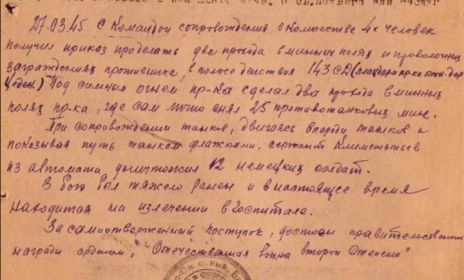 27.03.45 с командой сопровождения в количестве 4х человек
получил приказ проделать два прохода в минных полях и проволочных
заграждениях противника, в полосе действия 143 СД
Под сильным огнем пр-ка сделал два прохода в минных
полях пр-ка, где сам лично снял 25 противотанковых мин.
При сопровождении танков, двигаясь впереди танков и
показывая путь танкам флажками, сержант
из автомата уничтожил 12 немецких солдат.
В бою был тяжело ранен и в настоящее время
находится на излечении в госпитале.
За самоотверженный поступок, достоин правительственной
награды орденом, "Отечественная война второй степени"